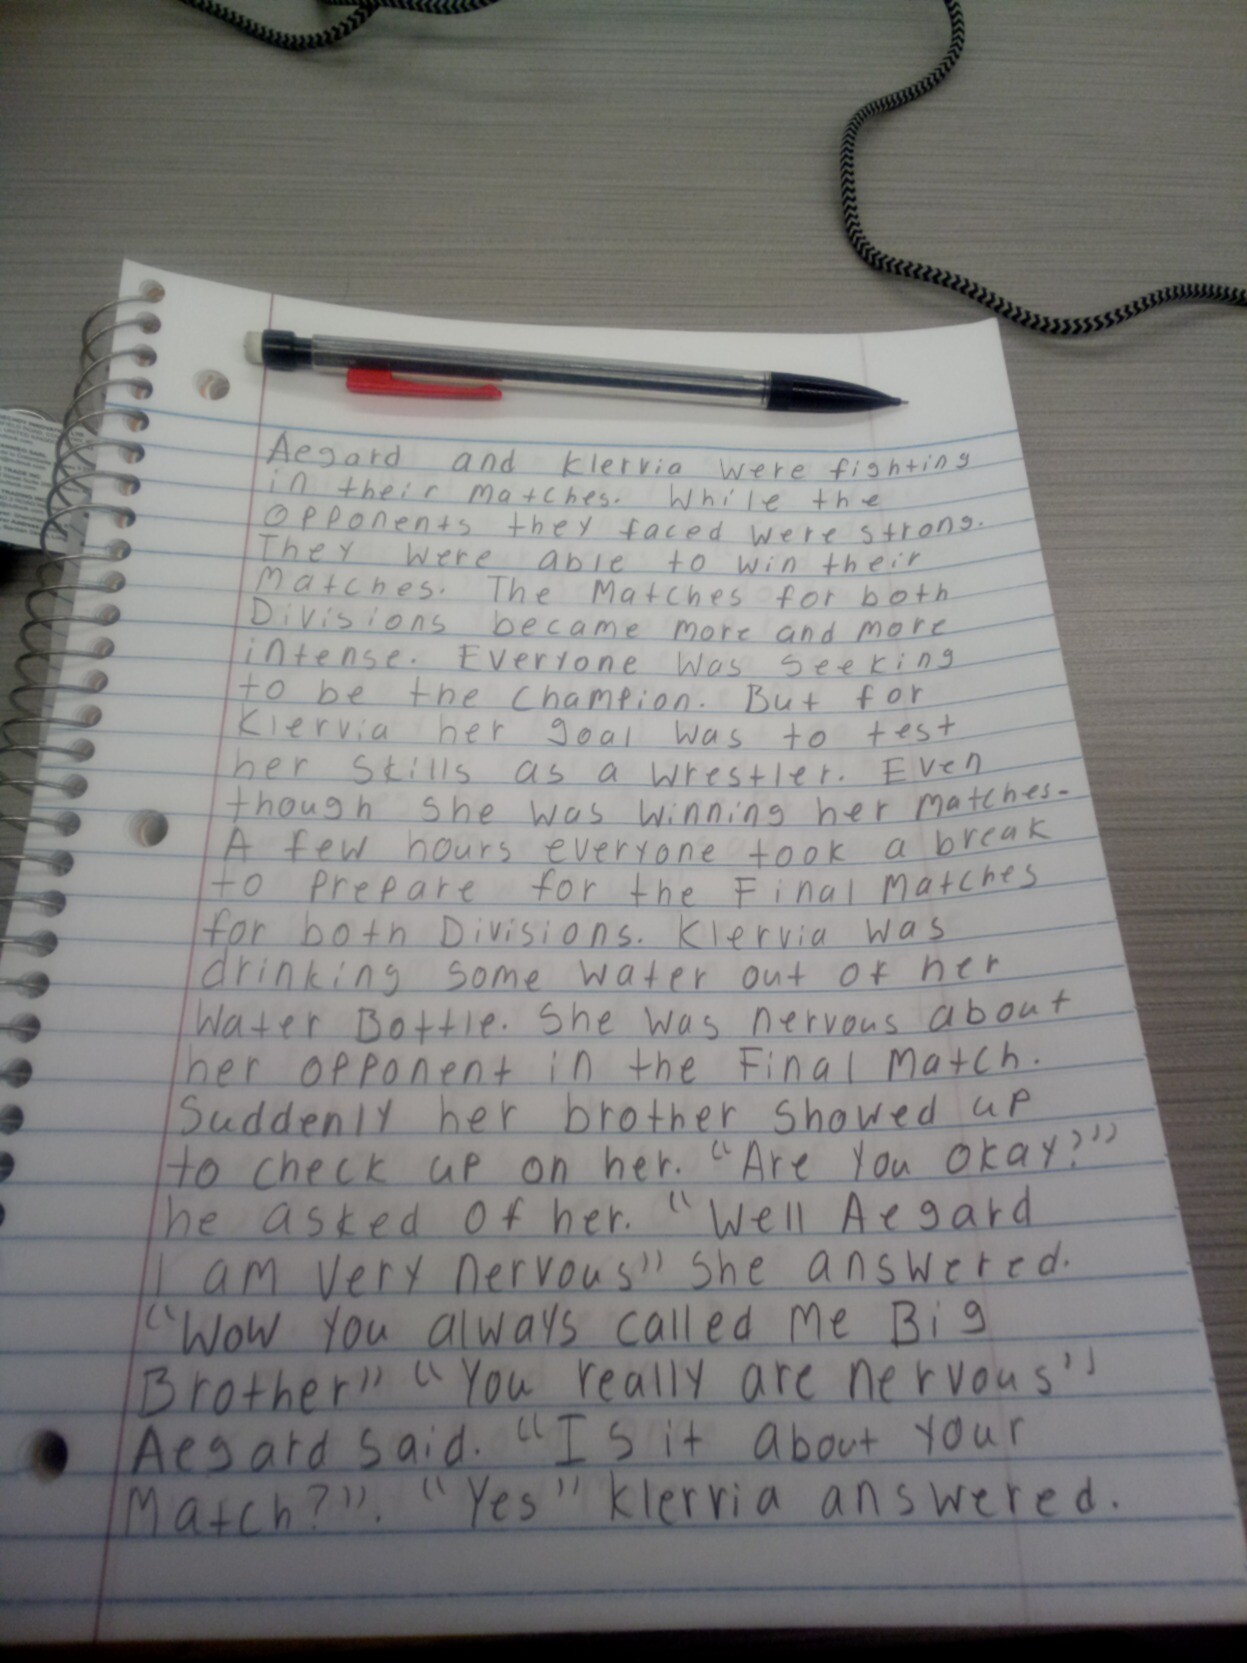 Aegard and Klervia were fighting
in their Matches. While the
opponents they faced were strong.
They were able to win their
Matches. The Matches for both
Divisions became more and more
intense. Everyone was seeking
to be the Champion. But for
Klervia her goal was to test
her skills as a wrestler. Even
though she was winning her matches.
A few hours everyone took a break
to prepare for the Final Matches
for both Divisions. Klervia was
drinking some water out of her
Water Bottle. She was nervous about
her opponent in the Final Match.
Suddenly her brother showed up
to check up on her. "Are you okay?"
he asked of her. "Well Aegard
I am very nervous" she answered.
"Wow you always called me Big
Brother" "You really are nervous"
Aegard said. "Is it about your
Match?". "Yes" Klervia answered.